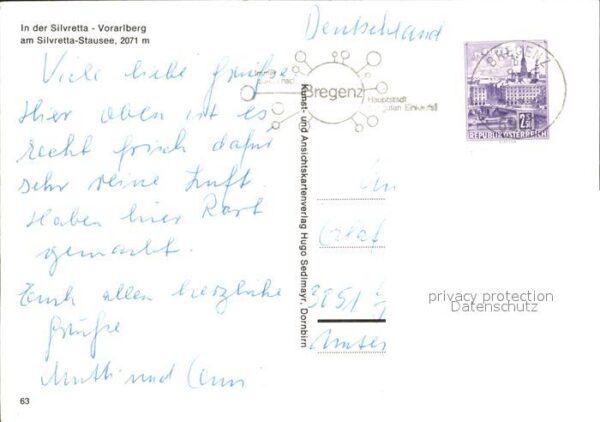 In der Silvretta - Vorarlberg
am Silvretta-Stausee, 2071 m
Viele liebe Grüße
Hier oben ist es
recht frisch dafür
sehr reine Luft.
Haben hier Rast
gemacht.
Euch allen herzliche
Grüße
Mutti und
63
Kunst- und Ansichtskartenverlag Hugo Sedlmayr, Dornbirn
Deutschland
Bregenz
Hauptstadt
guten Einkaufs
BREGENZ
2.50
REPUBLIK ÖSTERREICH
An
3051
privacy protection
Datenschutz